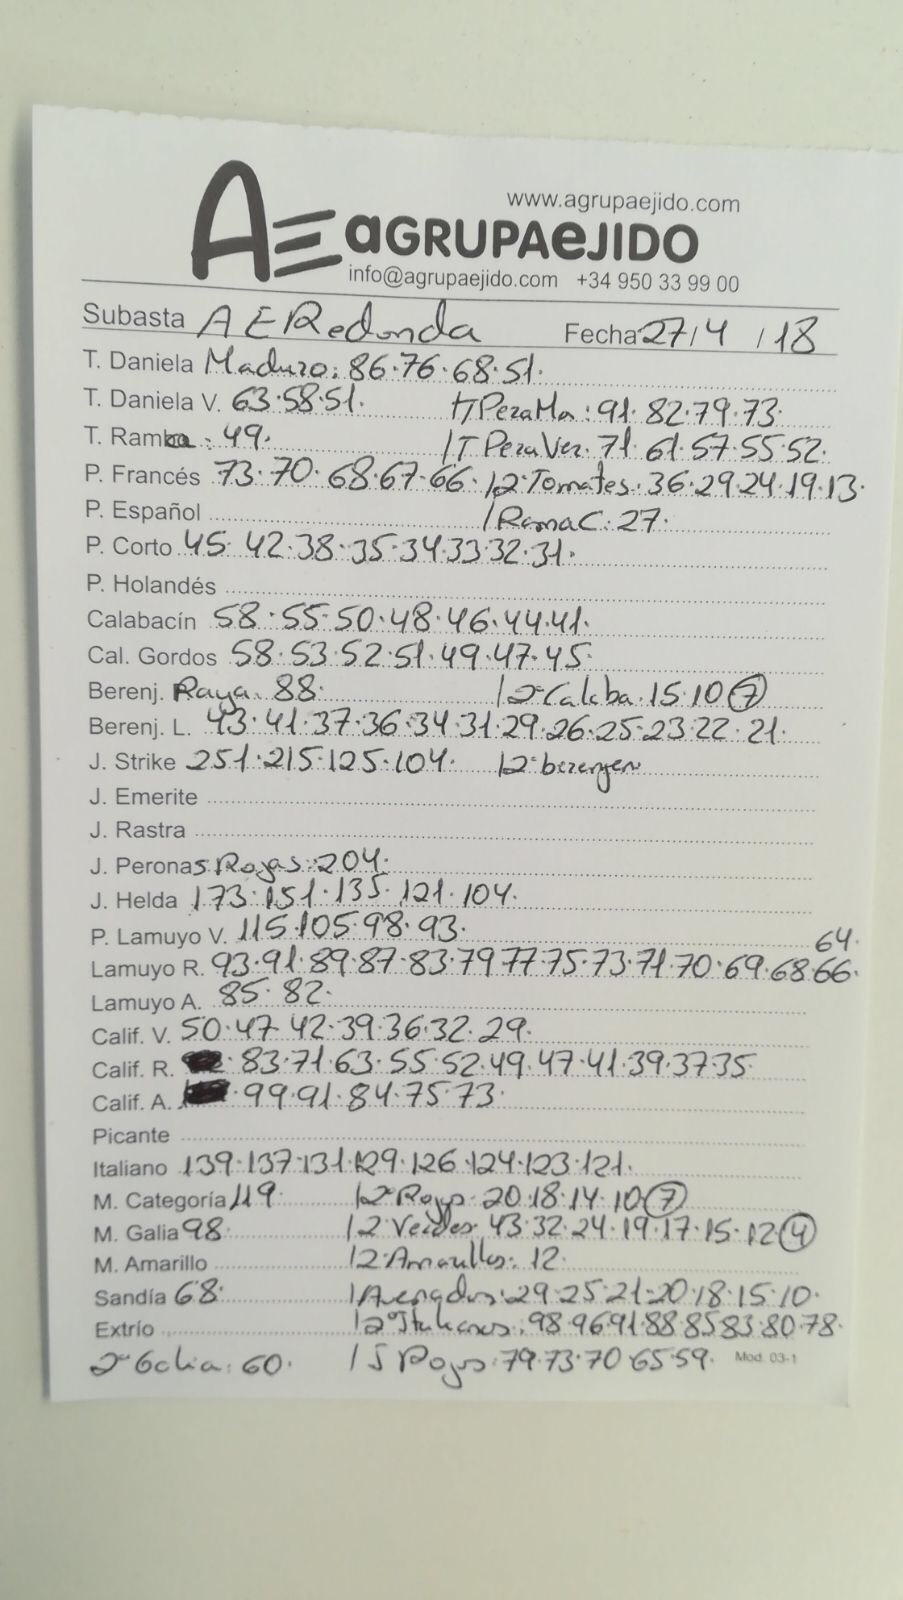 www.agrupaejido.com
AE aGRUPAeJIDO
info@agrupaejido.com +34 950 33 99 00
Subasta AERedonda Fecha 27/4 /18
T. Daniela Maduro: 86·76·68·51·
T. Daniela V. 63·58·51· /T Pera Ma: 91·82·79·73·
T. Rama: 49· /T Pera Ver. 71·61·57·55·52·
P. Francés 73·70·68·67·66· /2ª Tomates: 36·29·24·19·13·
P. Español /RamaC: 27·
P. Corto 45·42·38·35·34·33·32·31·
P. Holandés
Calabacín 58·55·50·48·46·44·41·
Cal. Gordos 58·53·52·51·49·47·45·
Berenj. Raya: 88· /2ª Calaba: 15·10 7
Berenj. L. 43·41·37·36·34·31·29·26·25·23·22·21·
J. Strike 251·215·125·104· /2ª berenjen
J. Emerite
J. Rastra
J. Peronas Rojas: 204·
J. Helda 173·151·135·121·104·
P. Lamuyo V. 115·105·98·93·
64·
Lamuyo R. 93·91·89·87·83·79·77·75·73·71·70·69·68·66·
Lamuyo A. 85·82·
Calif. V. 50·47·42·39·36·32·29·
Calif. R. 83·71·63·55·52·49·47·41·39·37·35·
Calif. A. 99·91·84·75·73·
Picante
Italiano 139·137·131·129·126·124·123·121·
M. Categoría 119· /2ª Rojos: 20·18·14·10 7
M. Galia 98· /2 Verdes 43·32·24·19·17·15·12 4
M. Amarillo /2ª Amarillos: 12·
Sandía 68· /Asurcados: 29·25·21·20·18·15·10·
Extrío /2ª Italianos: 98·96·91·88·85·83·80·78·
2ª Galia: 60· /S Rojos: 79·73·70·65·59· Mod. 03-1